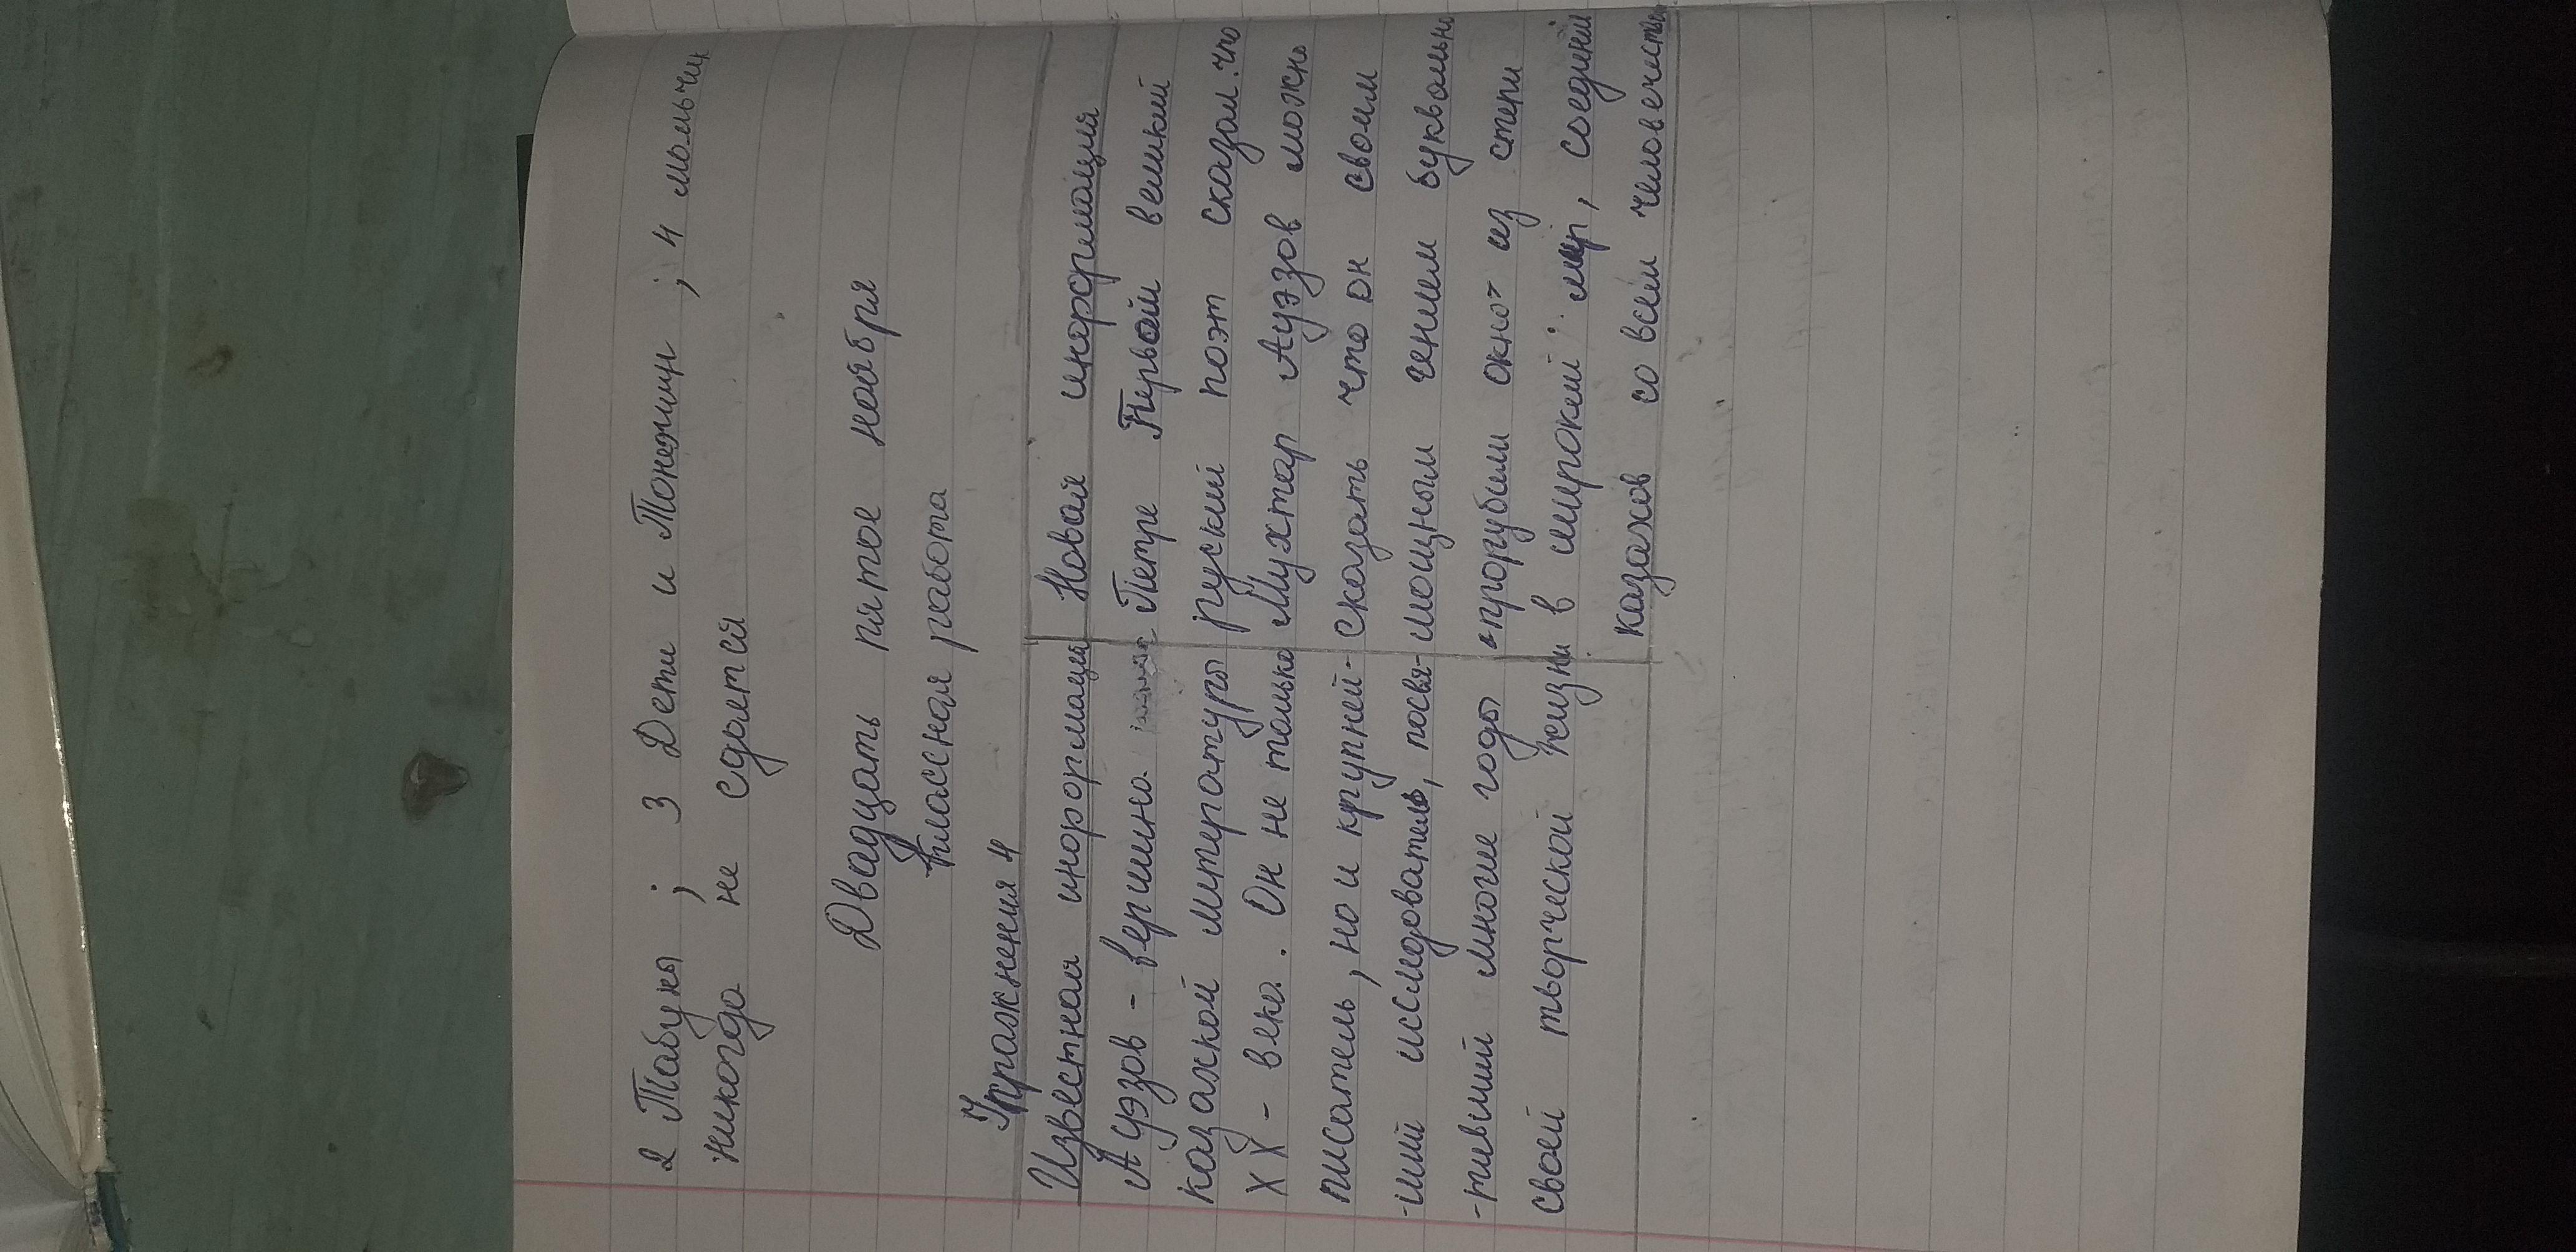 2 Табуны ; 3 Дети и Тонекин ; 4 мальчик
никогда не сдоется
Двадцать пятое ноября
Классная работа
Упражнения 4
Известная инорормация
Ауэзов - вершина
казахкой литературы
XX - века. Он не только
писатель, но и крупней-
-ший исследователь, посвя-
-тивший многие годы
своей творческой жизни
Новая информация
Петре Первой великий
руский поэт сказал. что
Мухтар Ауэзов можно
сказать что он своим
мощным гением буквально
"прорубили окно" из степи
в широкий мир, соединил
казахов со всем человечеством